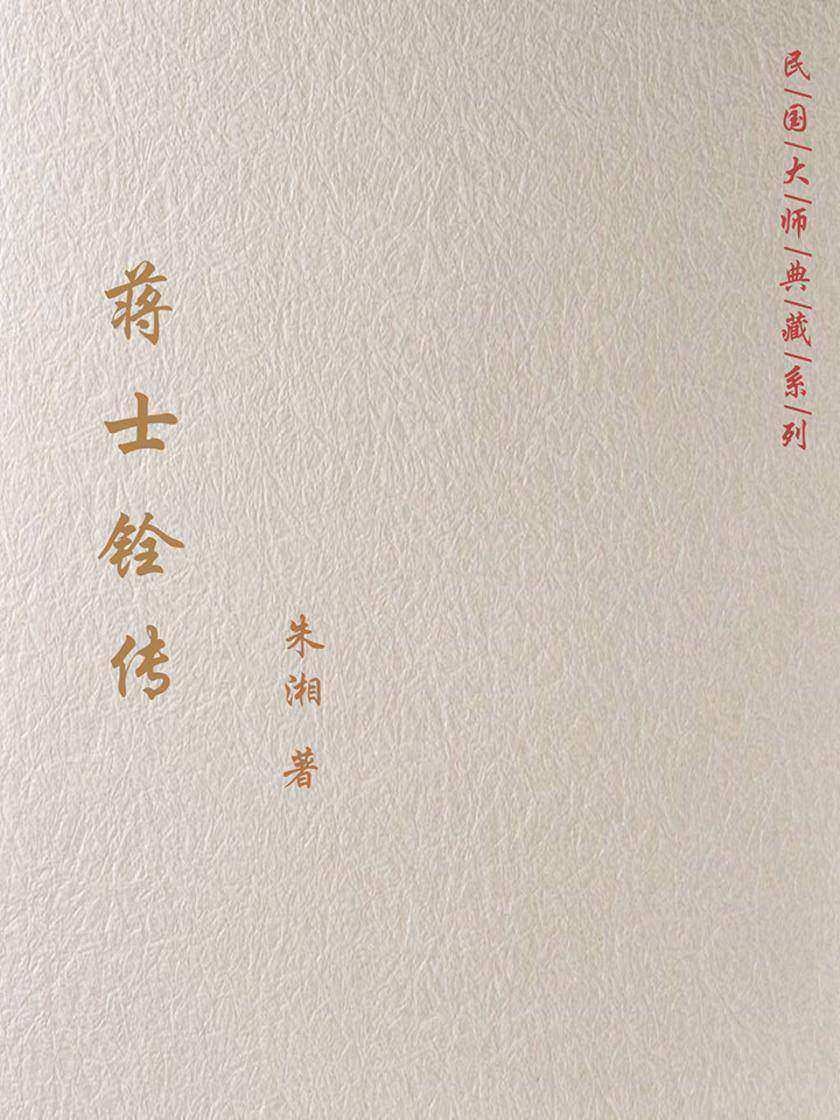 民/国/大/师/典/藏/系/列
蒋士铨传
朱湘 著